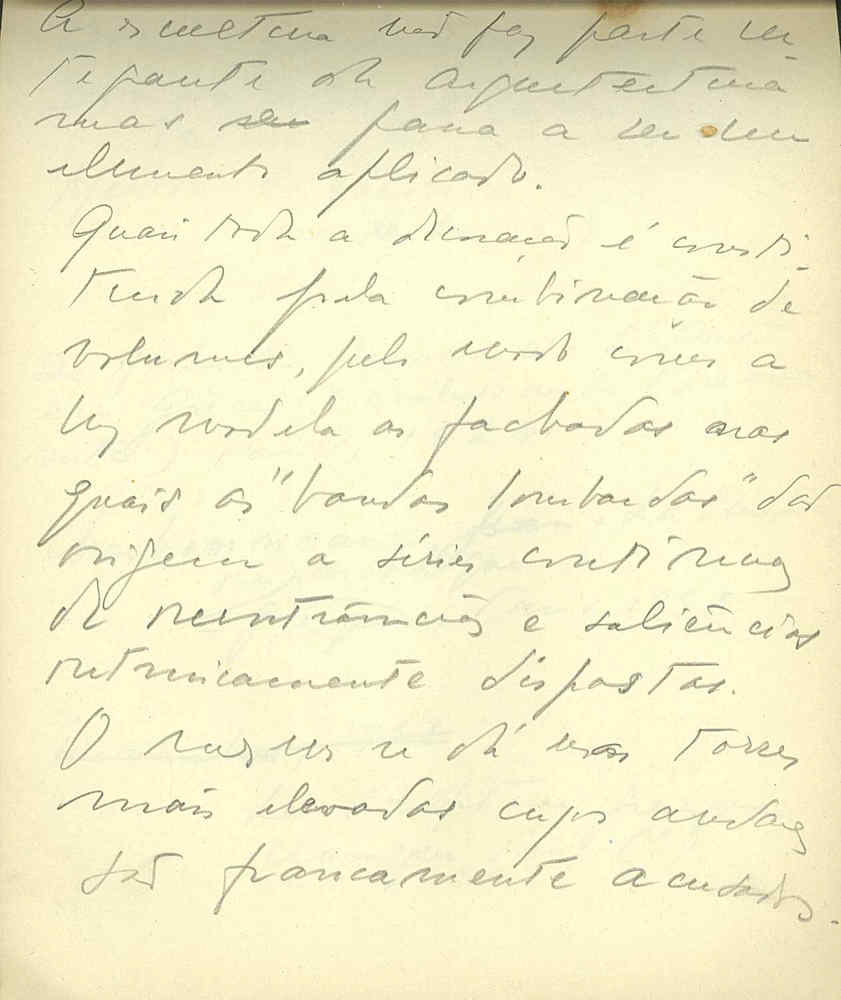 A escultura não faz parte in-
tegrante da arquitectura
mas passa a ser um
elemento aplicado.
Quasi toda a decoração é consti-
tuida pela combinação de
volumes, pelo modo como a
luz modela as fachadas nas
quais as "bandas lombardas" dão
origem a séries continuas
de reentrâncias e saliências
ritmicamente dispostas.
O mesmo se dá nas torres
mais elevadas cujos andares
são francamente acusados.